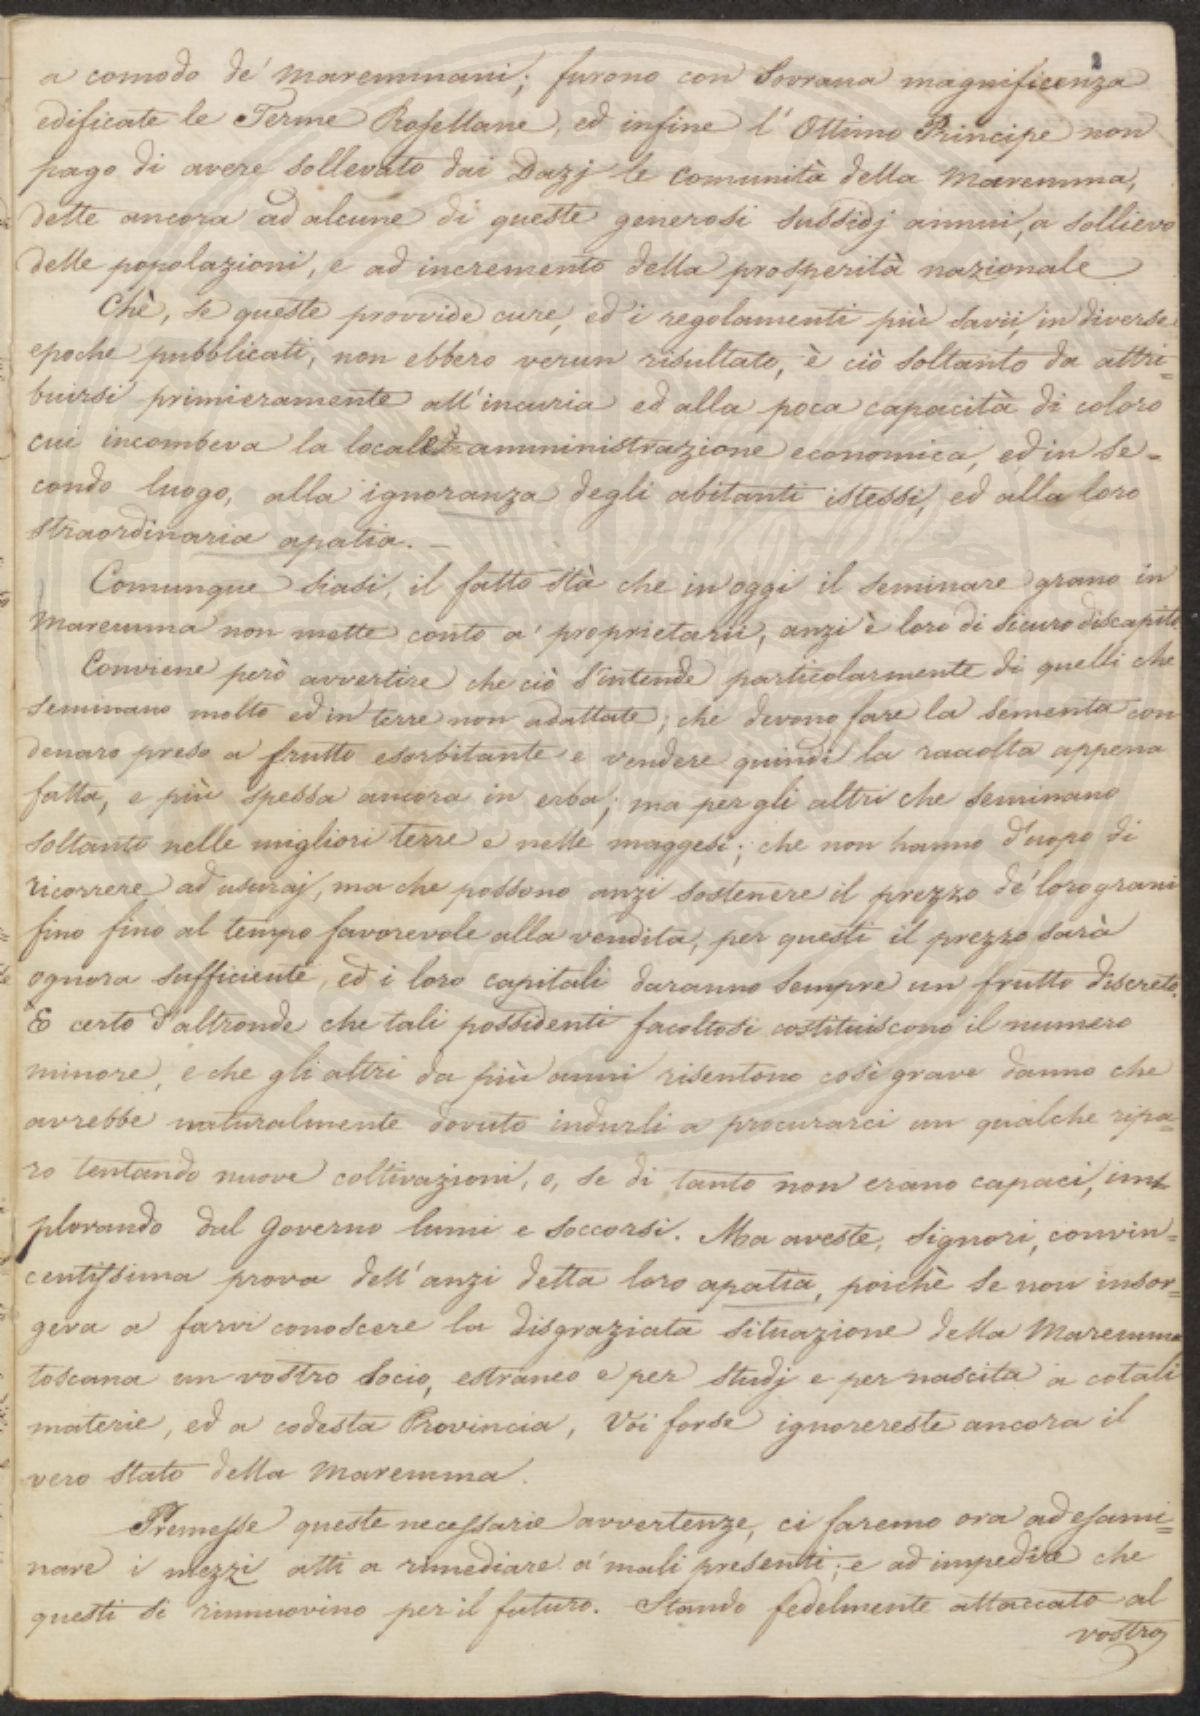 2
a comodo de' Maremmani; furono con Sovrana magnificenza
edificate le Terme Rosellane, ed infine l'Ottimo Principe non
pago di avere sollevato dai Dazj le comunità della Maremma,
dette ancora ad alcune di queste generosi sussidj annui, a sollievo
delle popolazioni, e ad incremento della prosperità nazionale
Chè, se queste provvide cure, ed i regolamenti più savii, in diverse
epoche pubblicati, non ebbero verun risultato, è ciò soltanto da attri=
buirsi primieramente all'incuria ed alla poca capacità di coloro
cui incombeva la locale amministrazione economica, ed in se=
condo luogo, alla ignoranza degli abitanti istessi, ed alla loro
straordinaria apatia. _
Comunque siasi, il fatto stà che in oggi il seminare grano in
Maremma non mette conto a' proprietarii, anzi è loro di sicuro discapito.
Conviene però avvertire che ciò s'intende particolarmente di quelli che
seminano molto ed in terre non adattate; che devono fare la sementa con
denaro preso a frutto esorbitante e vendere quindi la raccolta appena
fatta, e più spessa ancora in erba; ma per gli altri che seminano
soltanto nelle migliori terre e nelle maggesi; che non hanno d'uopo di
ricorrere ad usuraj, ma che possono anzi sostenere il prezzo de' loro grani
fino fino al tempo favorevole alla vendita, per questi il prezzo sarà
ognora sufficiente, ed i loro capitali daranno sempre un frutto discreto.
È certo d'altronde che tali possidenti facoltosi costituiscono il numero
minore, e che gli altri da più anni risentono così grave danno che
avrebbe naturalmente dovuto indurli a procurarci un qualche ripa=
ro tentando nuove coltivazioni, o, se di tanto non erano capaci, im=
plorando dal Governo lumi e soccorsi. Ma aveste, Signori, convin=
centissima prova dell'anzi detta loro apatia, poichè se non insor=
geva a farvi conoscere la disgraziata situazione della Maremma
toscana un vostro Socio, estraneo e per studj e per nascita a cotali
materie, ed a codesta Provincia, Voi forse ignorereste ancora il
vero stato della Maremma.
Premesse queste necessarie avvertenze, ci faremo ora ad esami=
nare i mezzi atti a rimediare a' mali presenti; e ad impedire che
questi si rinnuovino per il futuro. Stando fedelmente attaccato al
vostro